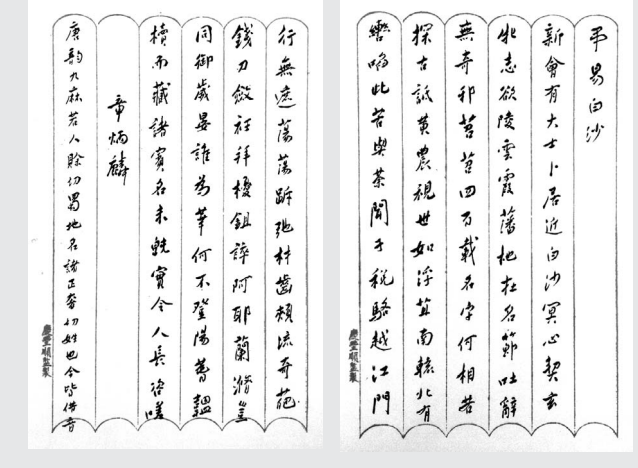 弔易白沙
新會有大士卜居近白沙冥心契玄
牝志欲陵雲霞藩杝杜名節吐辭
無奇邪苕苕四百載名字何相若
探古詆黃農視世如浮苴南轅北有
此苦與荼聞子稅駱越江門
行無遮蕩蕩跅弛材齒頰流奇葩
錢刀斂衽拜櫌鉏誶阿耶蘭漪豈
同御歲晏誰為華何不登陽春韞
櫝而藏諸賓名未實令人長咨嗟
章炳麟
唐韻九麻若人賒切蜀地名諸正奢切姓也今皆借音